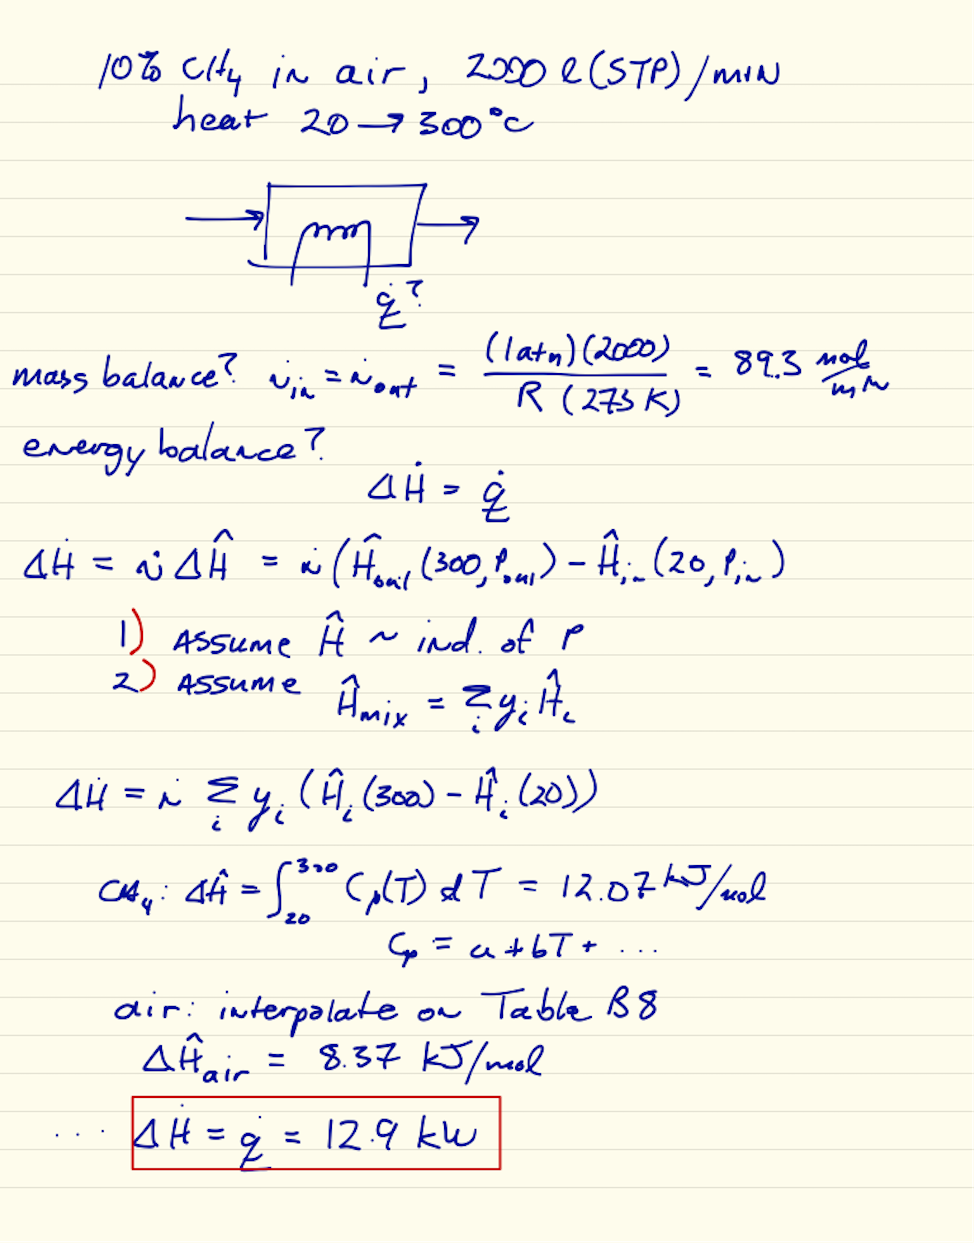 10% CH₄ in air, 2000 l(STP)/min
heat 20 → 300°C
q̇?
mass balance? ṅin = ṅout = (1atm)(2000) / R (273 K) = 89.3 mol/min
energy balance?
ΔḢ = q̇
ΔḢ = ṅ ΔĤ = ṅ (Ĥout (300, Pout) - Ĥin (20, Pin))
1) Assume Ĥ ~ ind. of P
2) Assume Ĥmix = Σi yi Ĥi
ΔḢ = ṅ Σi yi (Ĥi (300) - Ĥi (20))
CH₄: ΔĤ = ∫₂₀³⁰⁰ Cp(T) dT = 12.07 kJ/mol
Cp = a + bT + ...
air: interpolate on Table B8
ΔĤair = 8.37 kJ/mol
... ΔḢ = q̇ = 12.9 kW